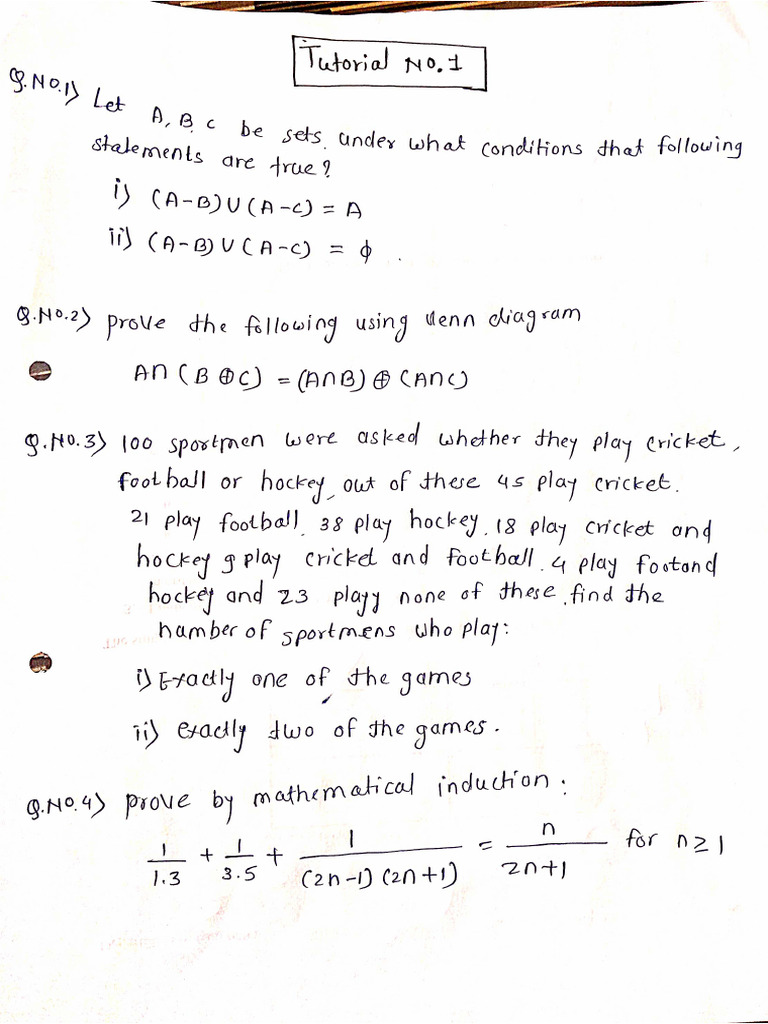 Tutorial No.1
Q.No.1) Let A, B, C be sets, under what conditions that following
statements are true?
i) (A-B)∪(A-C) = A
ii) (A-B)∪(A-C) = ϕ.
Q.No.2) prove the following using venn diagram
A∩(B⊕C) = (A∩B)⊕(A∩C)
Q.No.3) 100 sportmen were asked whether they play cricket,
football or hockey, out of these 45 play cricket.
21 play football, 38 play hockey, 18 play cricket and
hockey 9 play cricket and football. 4 play footand
hockey and 23 playy none of these, find the
number of sportmens who play:
i) Exactly one of the games
ii) exactly two of the games.
Q.No.4) prove by mathematical induction:
1/1.3 + 1/3.5 + 1/(2n-1)(2n+1) = n/2n+1 for n≥1